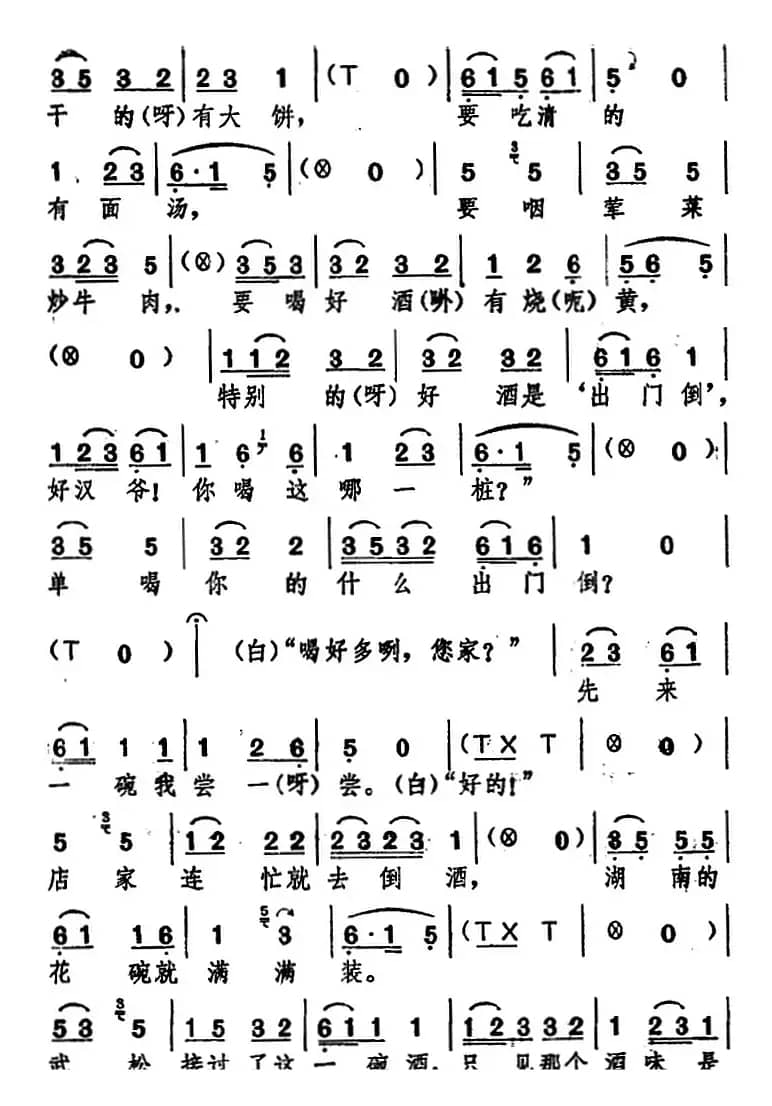 3 5 3 2 | 2 3 1 | (T 0) | 6 1 5 6 1 | 5 0 |
干 的(呀)有大 饼, 要 吃清 的
1 2 3 | 6·1 5 | (⊗ 0) | 5 5 | 3 5 5 |
有 面 汤, 要 咽 荤 菜
3 2 3 5 | (⊗) 3 5 3 | 3 2 3 2 | 1 2 6 | 5 6 5 |
炒牛 肉, 要 喝 好 酒(咻)有 烧(呃)黄,
(⊗ 0) | 1 1 2 3 2 | 3 2 3 2 | 6 1 6 1 |
特别 的(呀)好 酒是 ‘出 门 倒’,
1 2 3 6 1 | 1 6 6 | 1 2 3 | 6·1 5 | (⊗ 0) |
好汉 爷! 你喝 这 哪 一 桩?”
3 5 5 | 3 2 2 | 3 5 3 2 6 1 6 | 1 0
单 喝 你 的 什 么 出 门 倒?
(T 0) | (白)“喝好多咧, 您家?” | 2 3 6 1 |
先 来
6 1 1 1 | 1 2 6 | 5 0 | (T X T | ⊗ 0) |
一 碗 我 尝 一(呀) 尝。(白)“好的!”
5 5 | 1 2 2 2 | 2 3 2 3 1 | (⊗ 0) | 3 5 5 5 |
店 家 连 忙就 去 倒 酒, 湖 南的
6 1 1 6 | 1 3 | 6·1 5 | (T X T | ⊗ 0) |
花 碗就 满 满 装。
5 3 5 | 1 5 3 2 | 6 1 1 1 | 1 2 3 3 2 | 1 2 3 1 |
武 松 接过 了这 一 碗 酒, 只 见那个 酒 味 是